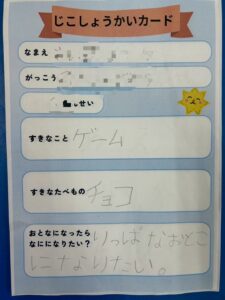 じこしょうかいカード
なまえ
がっこう
ねんせい
すきなこと ゲーム
すきなたべもの チョコ
おとなになったら
なにになりたい?
りっぱなおとこ
になりたい。